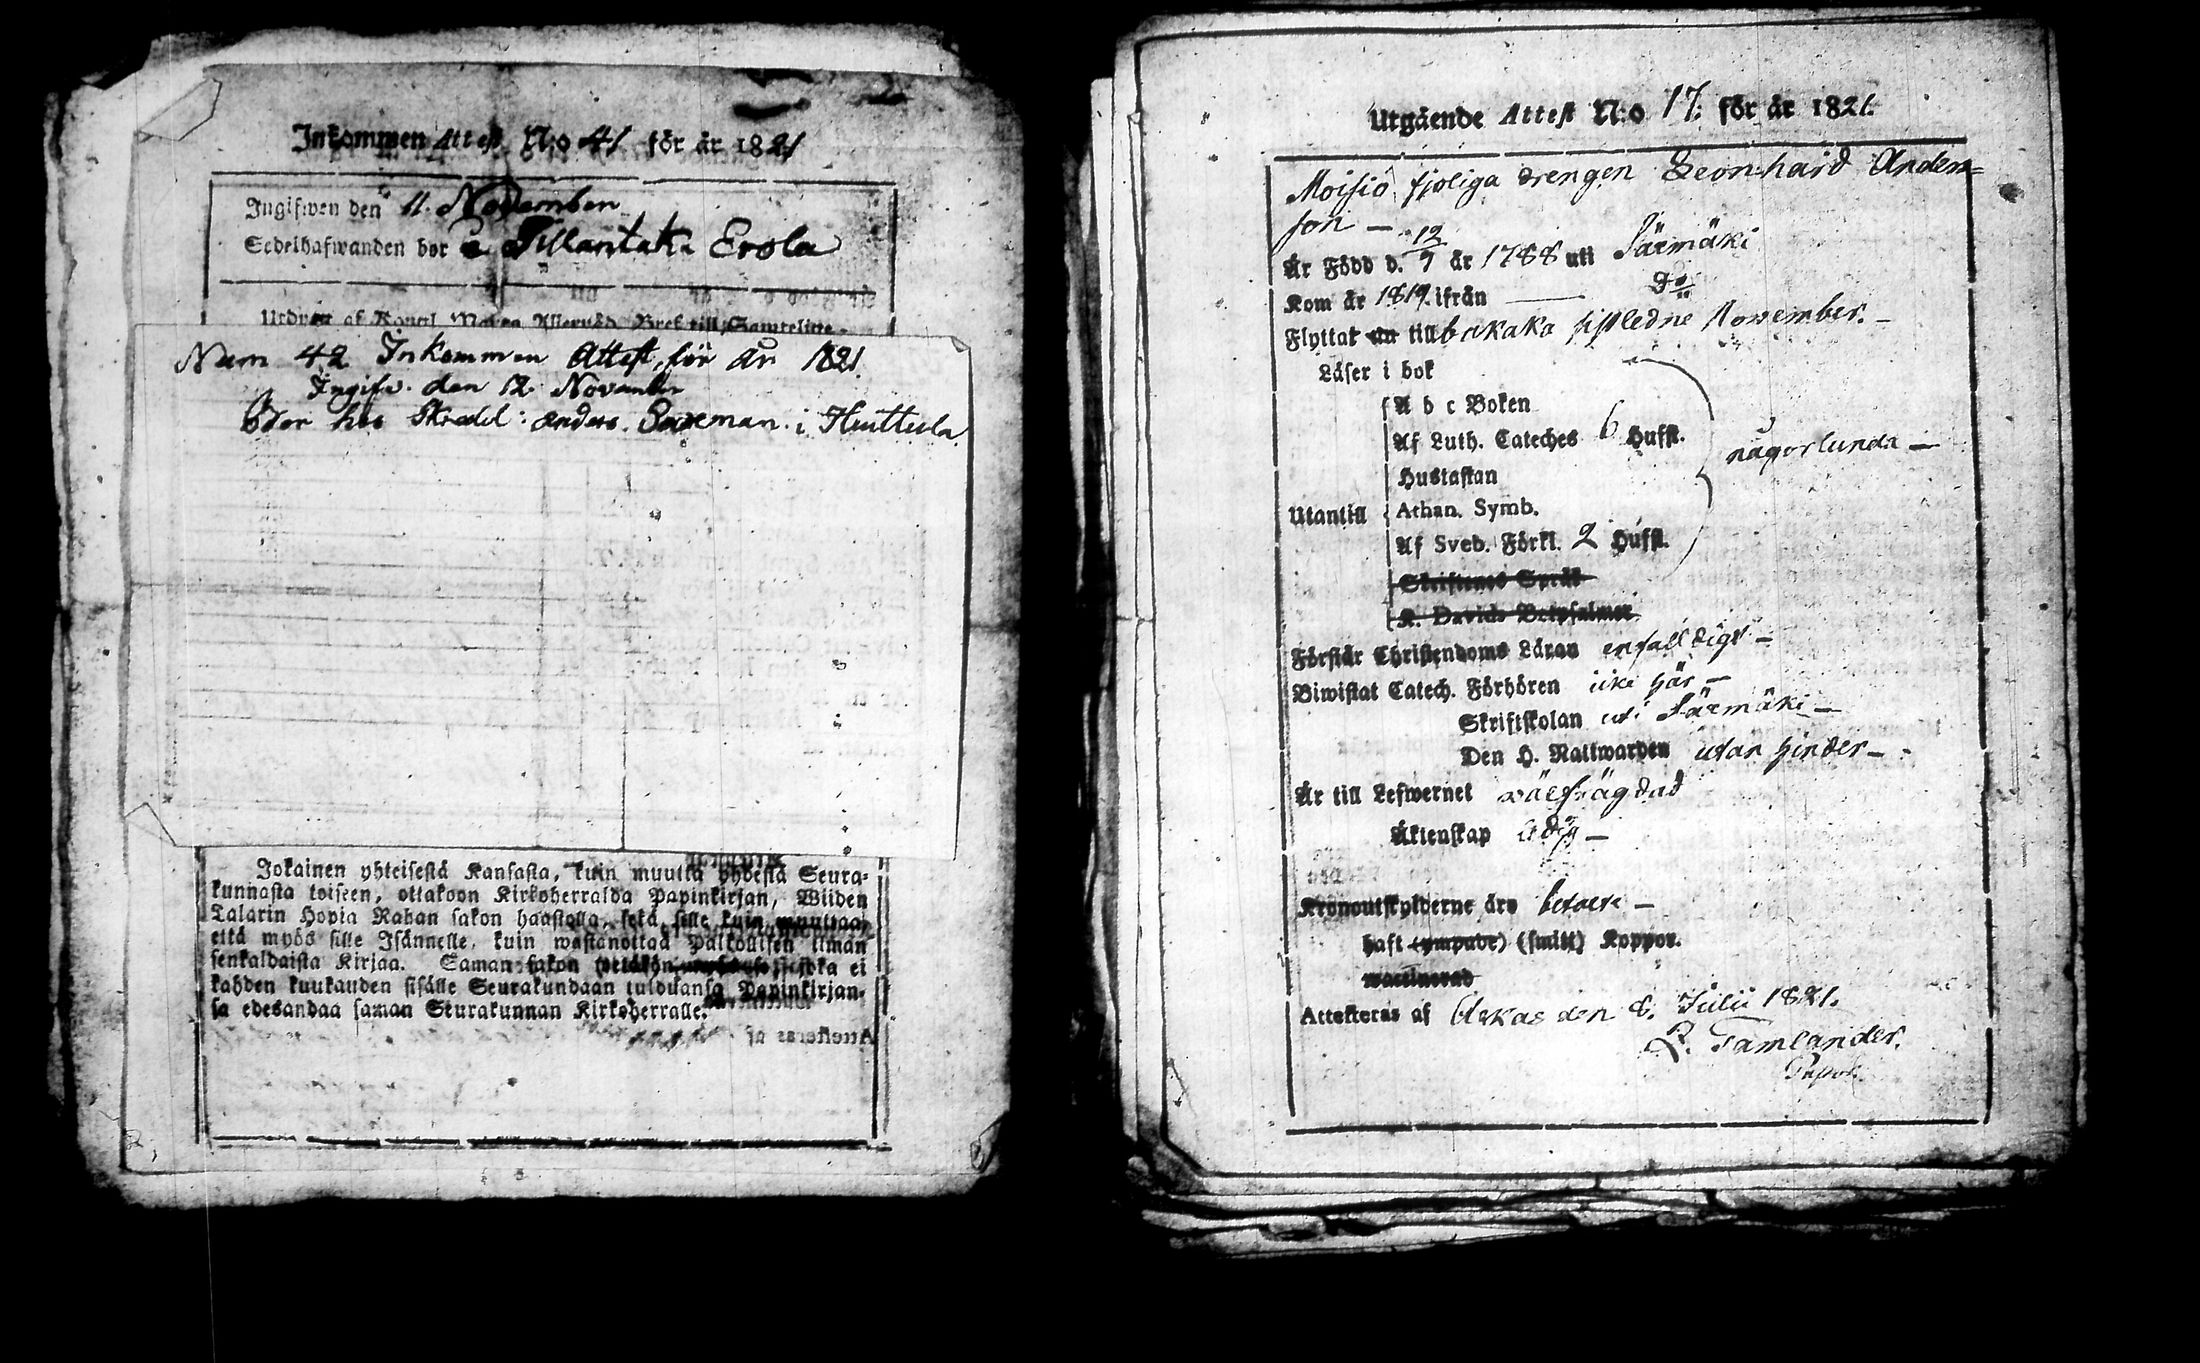 Inkommen Attest N:o 41 för år 1821
Ingifwen den 11. November
Sedelhafwanden bor å Tillantaka Erola
Utdrag af Kongl. Maj:ts Bref till Samtelige
Num 42 Inkommen Attest för år 1821.
Ingifv. den 12 November
Bor hos Skrädd: Anders Saxman i Huttula
Jokainen yhteisestä Kansasta, kuin muutta yhdestä Seura-
kunnasta toiseen, ottakoon Kirkoherralda Papinkirjan, Wiiden
Talarin Hopia Rahan sakon haastolla, sekä sille kuin muuttaa,
että myös sille Isännelle, kuin wastanottaa Palkollisen ilman
senkaldaista Kirjaa. Saman sakon joka ei
kahden kuukauden sisälle Seurakundaan tulduansa Papinkirjan-
sa edesandaa saman Seurakunnan Kirkoherralle.
Utgående Attest N:o 17. för år 1821.
Moisio fjoliga drengen Leonhard Anders-
son —
Är Född d. 12/9 år 1788 uti Säxmäki
Kom år 1819 ifrån — do
Flyttat till bakaka sistledne November. —
Läser i bok
A b c Boken
Af Luth. Cateches 6 Hufst.
Hustaflan
någorlunda —
Utantill
Athan. Symb.
Af Sveb. Förkl. 2 Hufst.
Skriftenes Språk
K. Davids Botpsalmer
Förstår Christendoms Läran enfaldigt —
Biwistat Catech. Förhören icke här —
Skriftskolan uti Säxmäki —
Den H. Nattwarden utan hinder —
Är till Lefwernet wälfrägdad
Äktenskap ledig —
Kronoutskylderne äro betalte —
haft (ympade) (smitt) Koppor.
waccinerad
Attesteras af Urkas den 8. Julii 1821.
Tamlander.
Pastor.